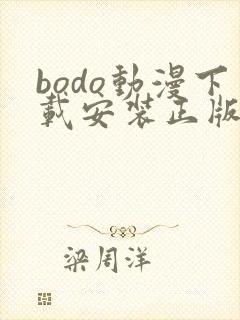 bodo動漫下
載安裝正版
梁周洋